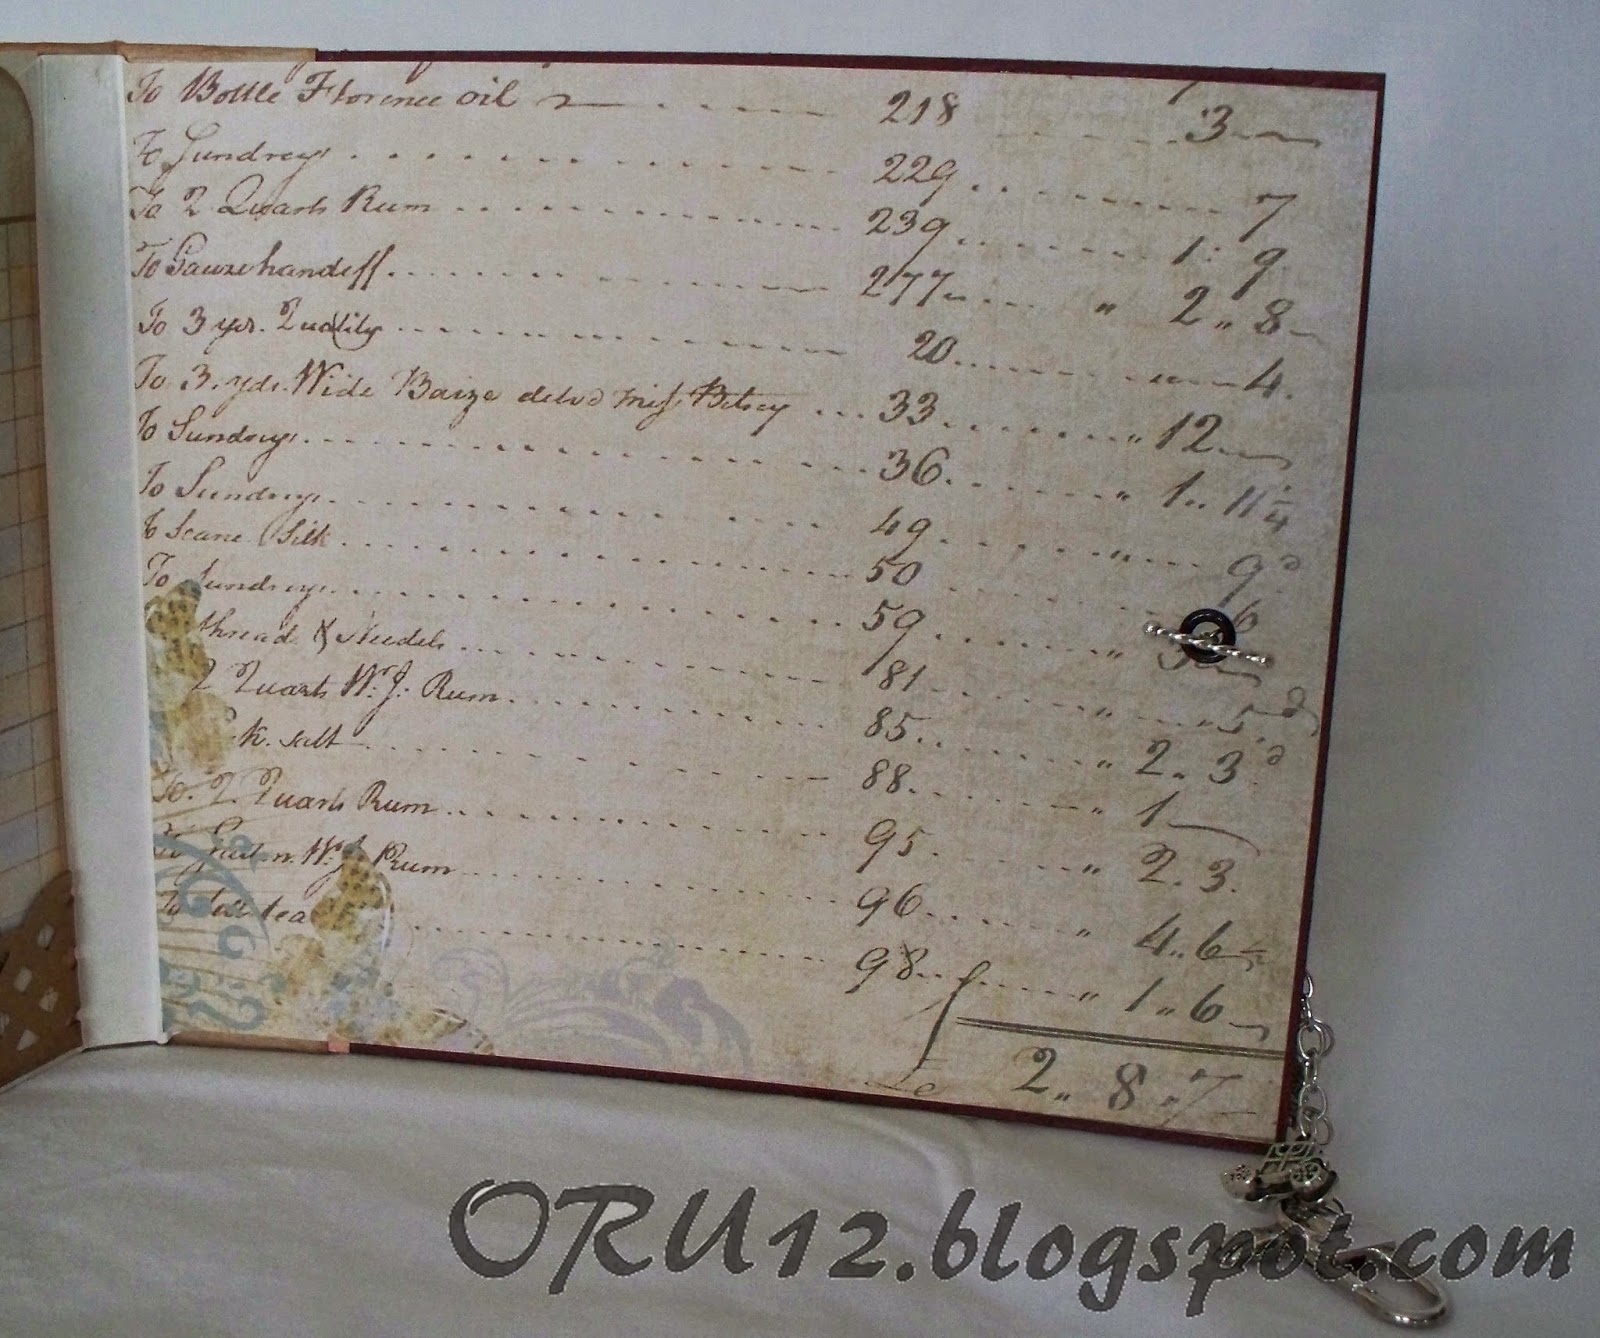 To Bottle Florence oil 218 3
To Sundreys 229 7
To 2 Quarts Rum 239 1: 9
To Gauzehandkff 277 " 2 " 8
To 3 yds. Quality 20 4.
To 3. yds. Wide Baize delvd Miss Betsey 33 " 12
To Sundreys 36 " 1 " 11 1/4
To Sundreys 49 " 9d
To Scane Silk 50 6
To Sundreys 59 "
thread & Needels 81 " " 5d
2 Quarts W. J. Rum 85 " 2 " 3d
k. salt 88 " 1
To. 2. Quarts Rum 95 " 2. 3.
To W. J. Rum 96 " 4 " 6
To tea 98 " 1 " 6
£ 2 " 8 " 7
ORU12.blogspot.com